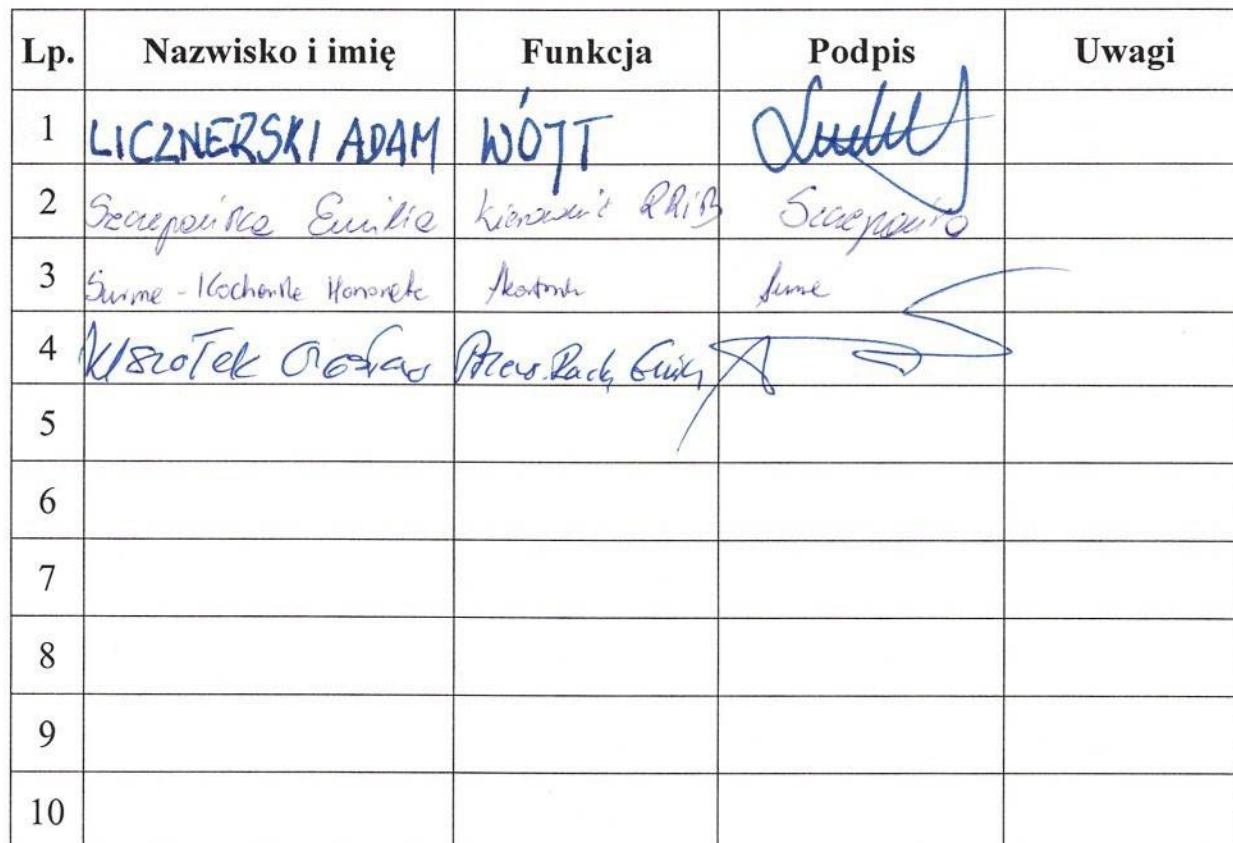 Lp. Nazwisko i imię Funkcja Podpis Uwagi
1 LICZNERSKI ADAM WÓJT
2 Szczepańska Emilia Kierownik RRiB Szczepańska
3 Surma - Kochanska Honorata
4 Przew. Rady Gminy
5
6
7
8
9
10